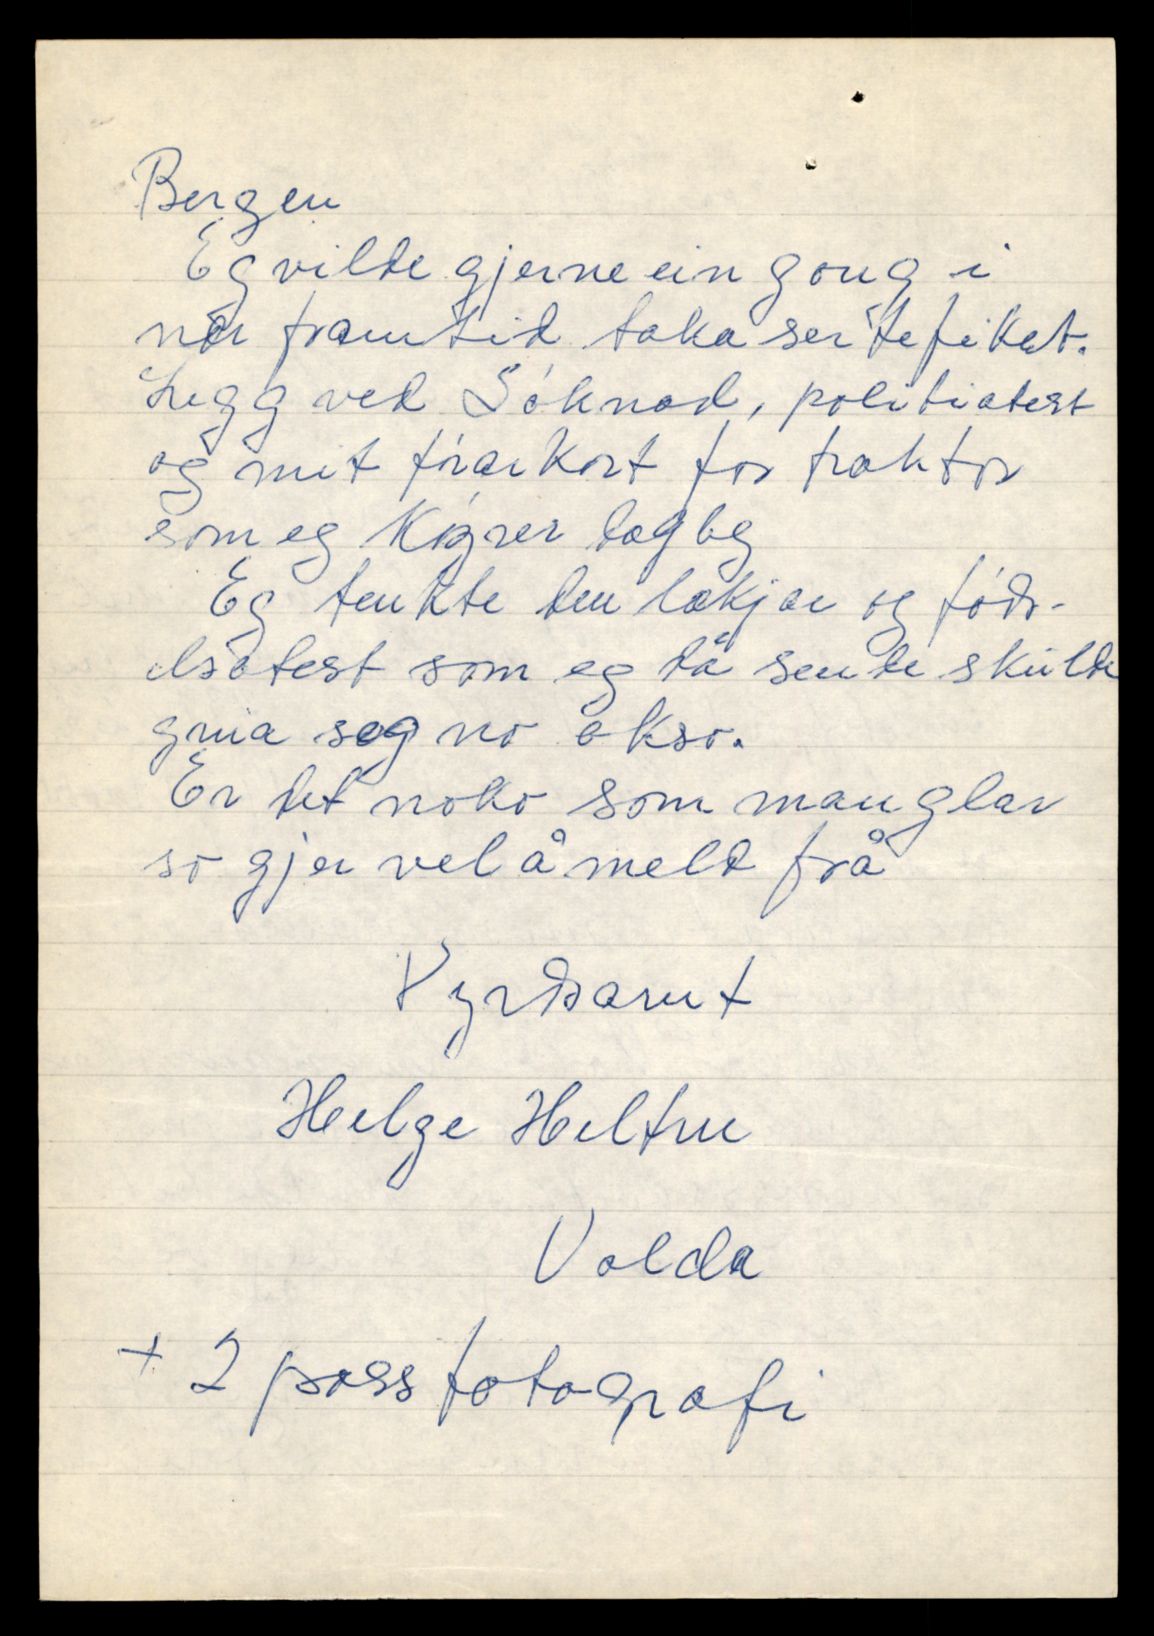 Bergen
Eg vilde gjerne ein gong i
nær framtid taka sertefikat.
Legg ved Søknad, politiatest
og mit førarkort for traktor
som eg Køyrer dagleg
Eg tenkte den lækjar og føds-
elsatest som eg då sende skulde
greia seg no okso.
Er det noko som manglar
so gjer vel å meld frå
Vyrdsamt
Helge
Volda
+ 2 passfotografi